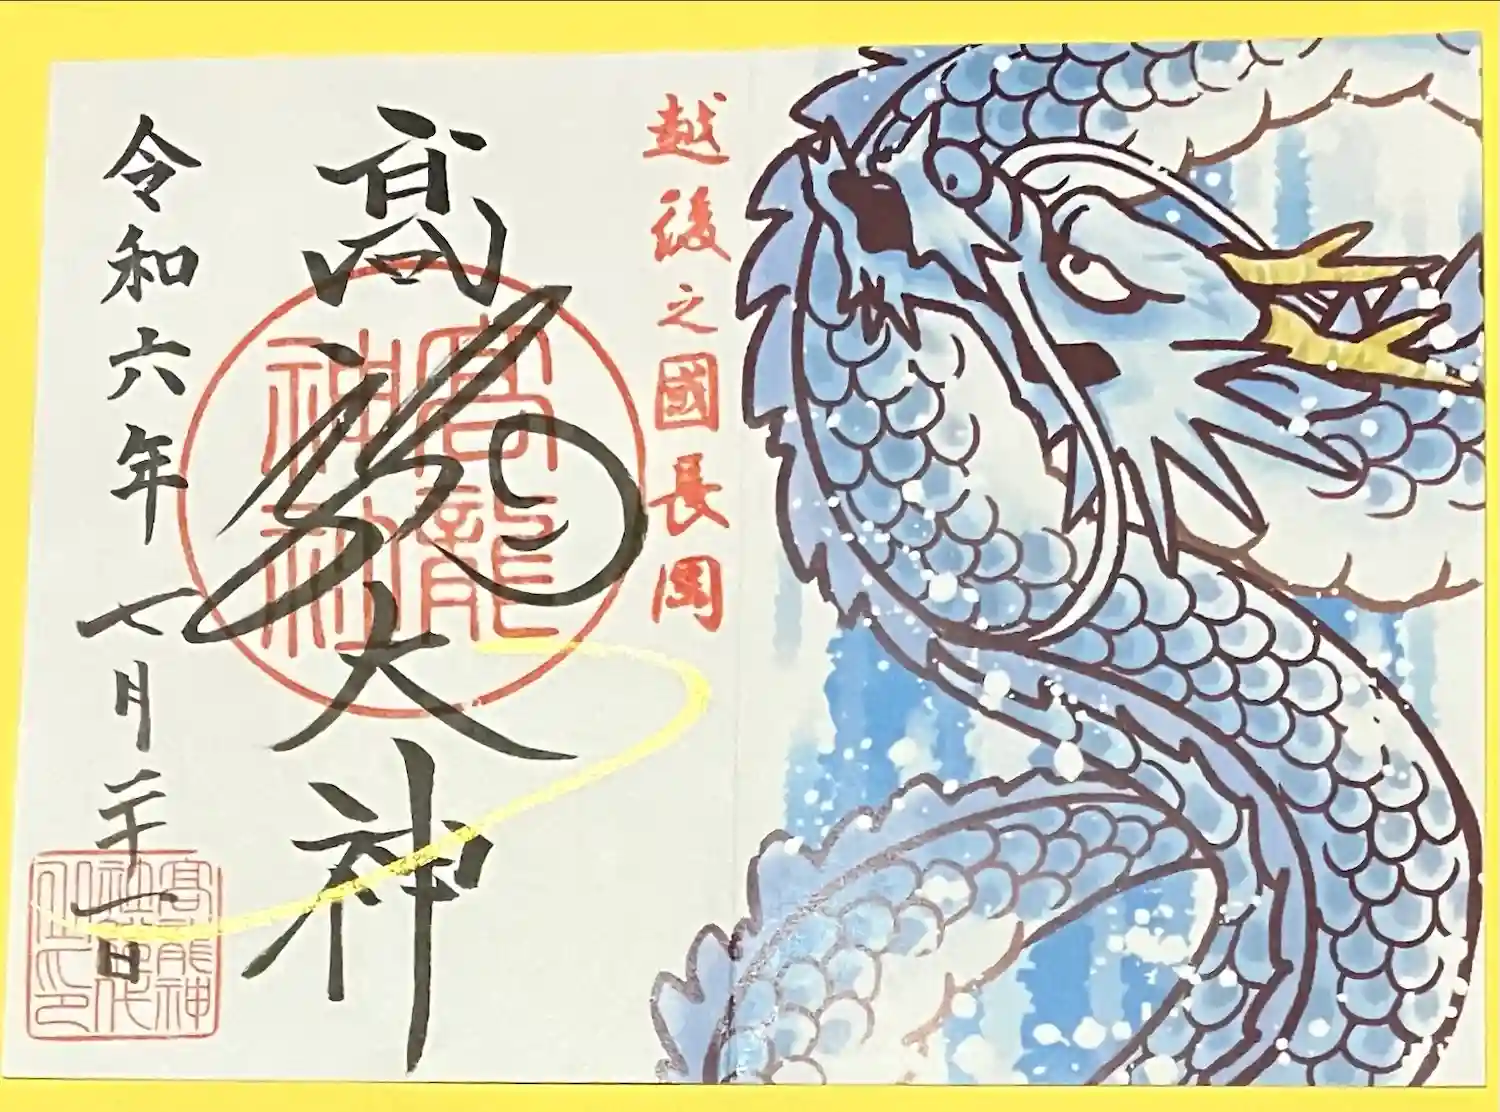 越後之國長岡
高龍大神
高龍神社
令和六年七月二十一日